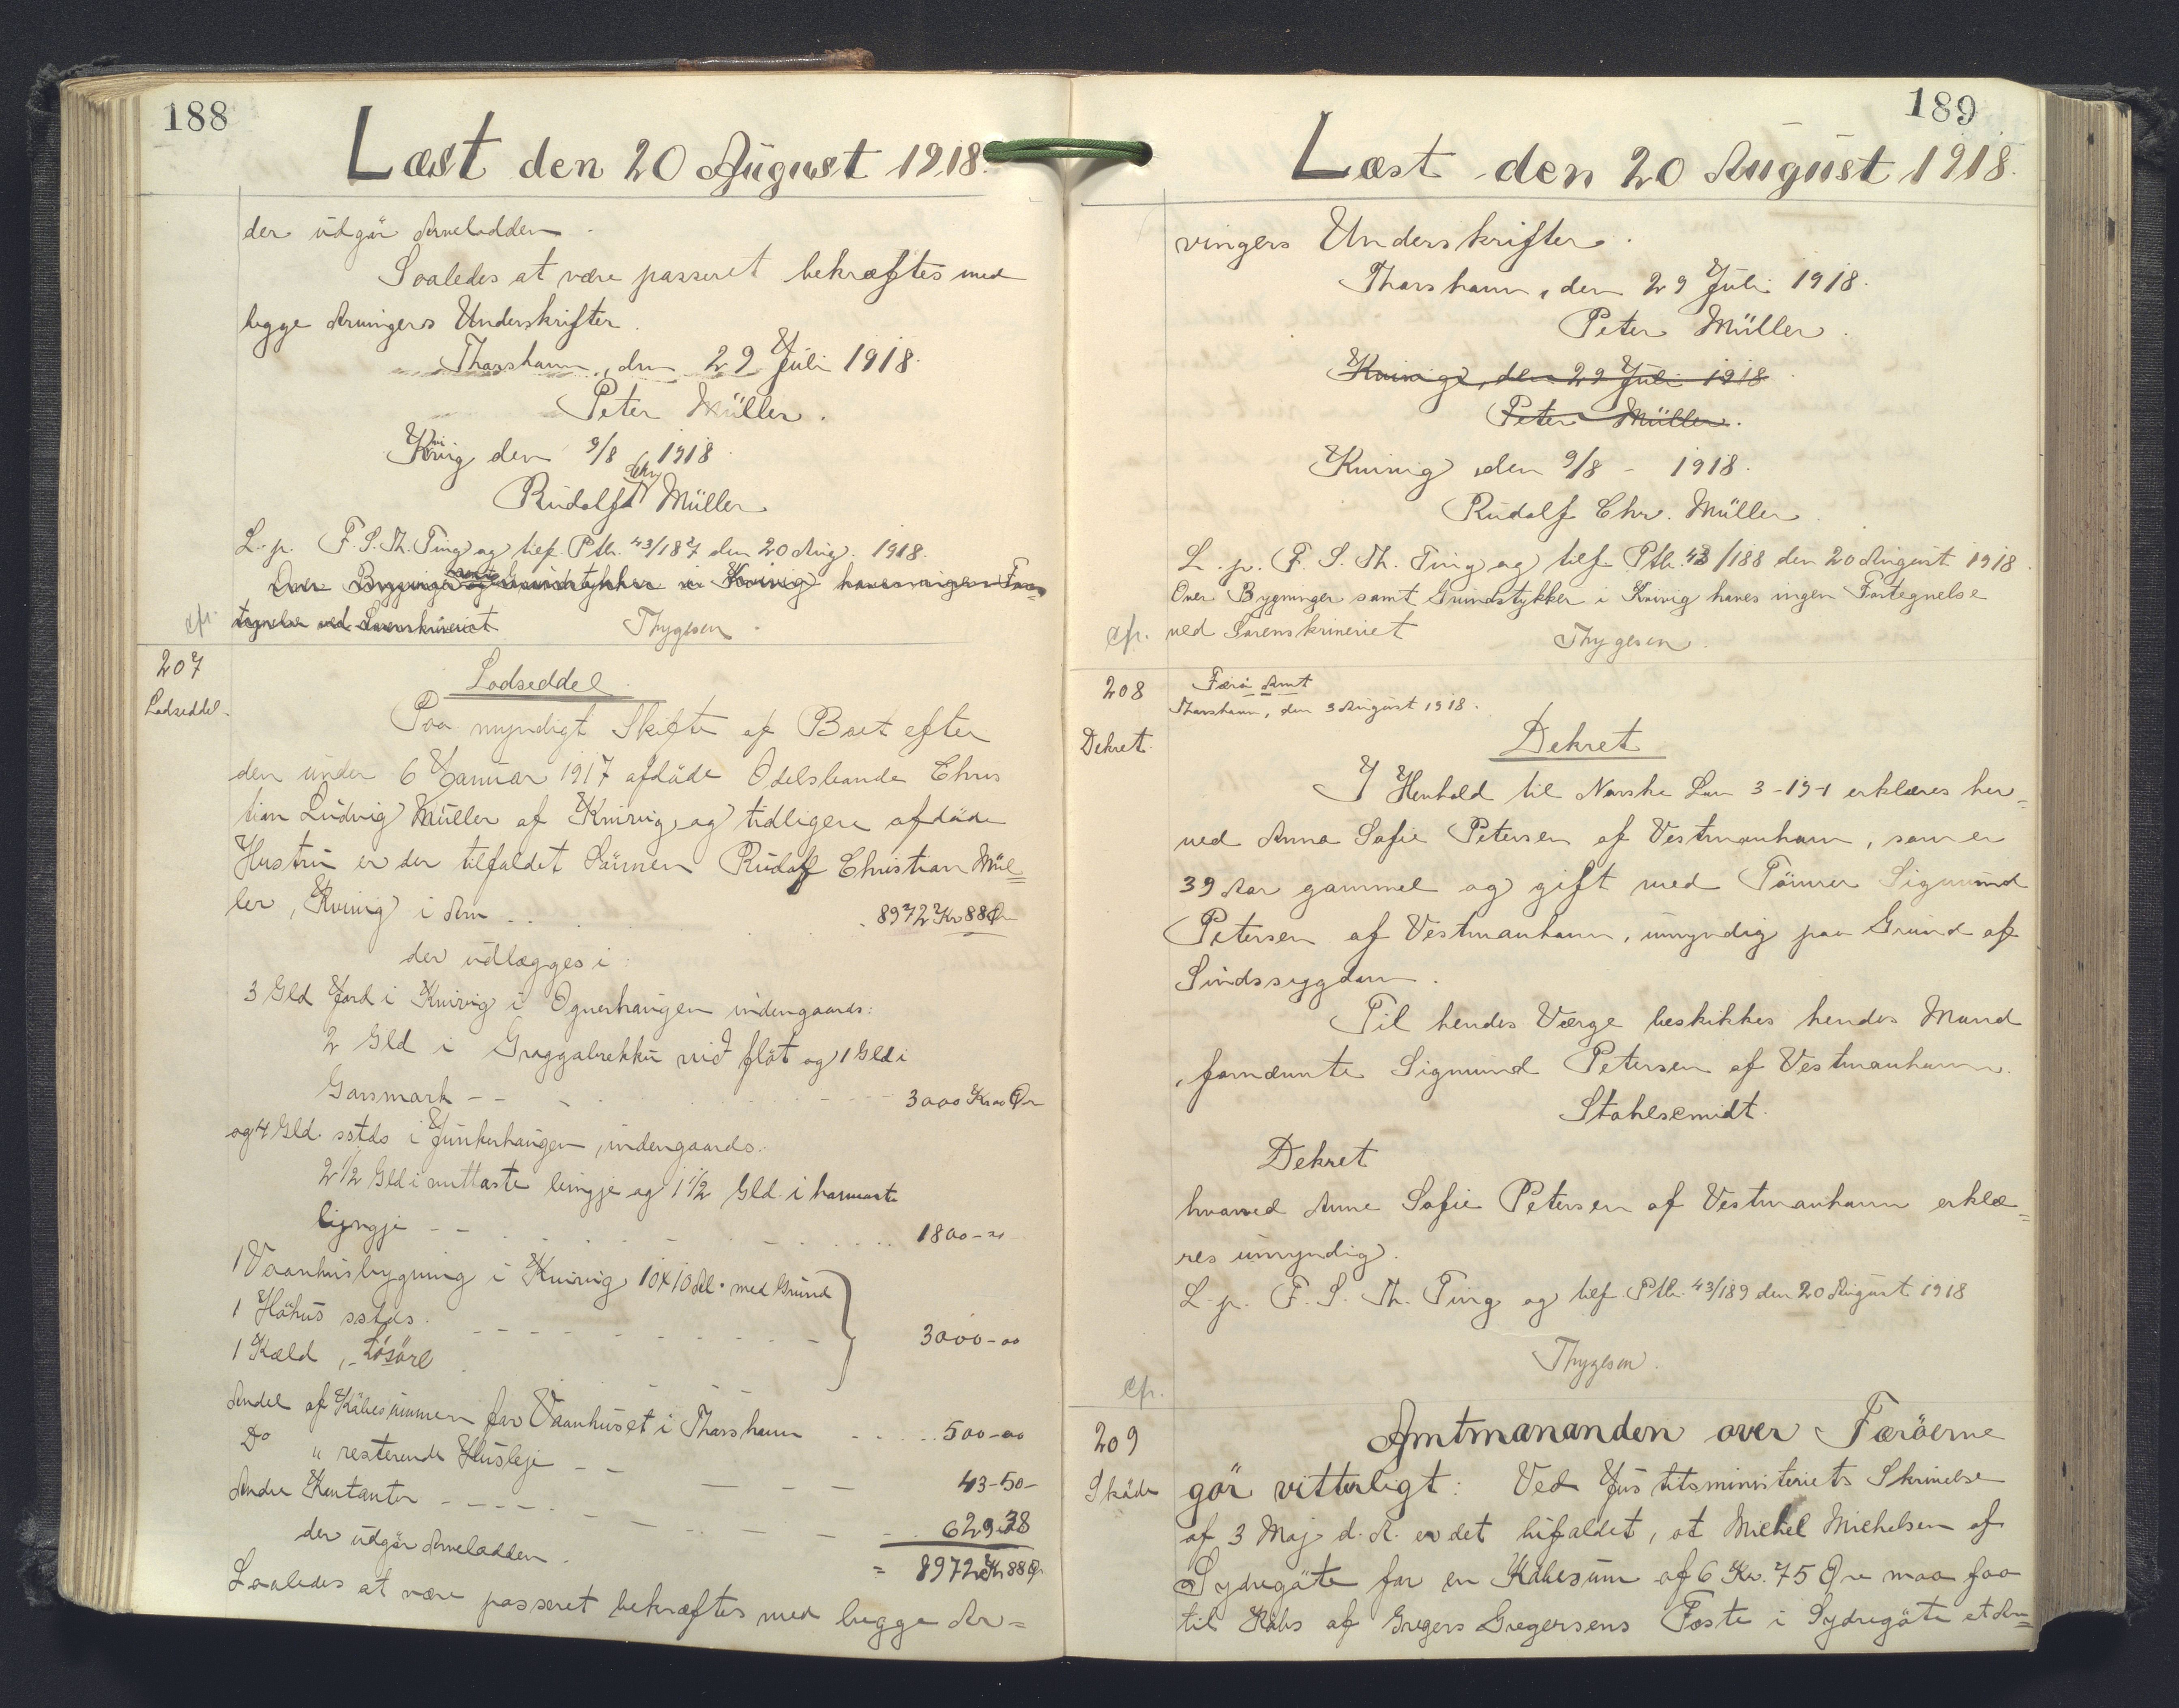 188
Læst den 20 August 1918.
der udgör Arvelodden.
Saaledes at være passeret bekræftes med
begge Arvingers Underskrifter.
Thorshavn, den 29 Juli 1918.
Peter Müller.
Kvivig den 9/8 1918
Rudolf Chr. Müller
L. p. F. S. Th. Ting og tilf. Ptb. 43/187 den 20 Aug. 1918.
Over Bygninger samt Grundstykker i Kvivig haves ingen For-
tegnelse ved Sorenskriveriet
cfr.
Thygesen.
207
Lodseddel.
Lodseddel.
Paa myndigt Skifte af Boet efter
den under 6 Januar 1917 afdöde Odelsbonde Chris
tian Ludvig Müller af Kvivig og tidligere afdöde
Hustru er der tilfaldet Sönnen Rudolf Christian Mül=
ler, Kvivig i Arv . . . 8972 Kr 88 Ør
der udlægges i:
3 Gld Jord i Kvivig i Ognerhaugen indengaards:
2 Gld i Graggabrekku við fløt og 1 Gld i
Garsmark - - - 3000 Kr 00 Ør
og 4 Gld. sstds i Junkerhaugen, indengaards:
2 1/2 Gld i nuttaste leingje og 1 1/2 Gld. i harmaste
lejngji - - . . . 1800 - "
1 Vaanhusbygning i Kvivig 10x10 Al. med Grund
1 Höhus sstds.
1 Kæld, - Lösöre
3000 - 00
Andel af Köbesummen for Vaanhuset i Thorshavn . . . 500 - 00
Do " resterende Husleje - - 43 - 50 -
Andre Kontanter - - - - . 629.38
der udgör Arvelodden. = 8972 Kr 88 Ør
Saaledes at være passeret bekræftes med begge Ar=
189
Læst den 20 August 1918.
vingers Underskrifter.
Thorshavn, den 29 Juli 1918.
Peter Müller.
Kvivig, den 29 Juli 1918
Peter Müller.
Kvivig den 9/8 - 1918.
Rudolf Chr. Müller
L. p. F. S. Th. Ting og tilf. Ptb. 43/188 den 20 August 1918.
Over Bygninger samt Grundstykker i Kvivig haves ingen Fortegnelse
cfr. ved Sorenskriveriet
Thygesen.
208
Dekret.
Færö Amt
Thorshavn, den 3 August 1918.
Dekret
I Henhold til Norske Lov 3-19-1 erklæres her=
ved Anna Sofie Petersen af Vestmanhavn, som er
39 Aar gammel og gift med Tömrer Sigmund
Petersen af Vestmanhavn, umyndig paa Grund af
Sindssygdom.
Til hendes Værge beskikkes hendes Mand
, fornævnte Sigmund Petersen af Vestmanhavn.
Stahlscmidt.
Dekret
hvorved Anne Sofie Petersen af Vestmanhavn erklæ=
res umyndig.
L. p. F. S. Th. Ting og tilf. Ptb. 43/189 den 20 August 1918
Thygesen.
cfr.
209
Sköde
Amtmananden over Færöerne
gör vitterligt: Ved Justitsministeriets Skrivelse
af 3 Maj d. A. er det bifaldet, at Michel Michelsen af
Sydregöte for en Köbesum af 6 Kr. 75 Øre maa faa
til Köbs af Gregers Gregersens Fæste i Sydregöte et Are=